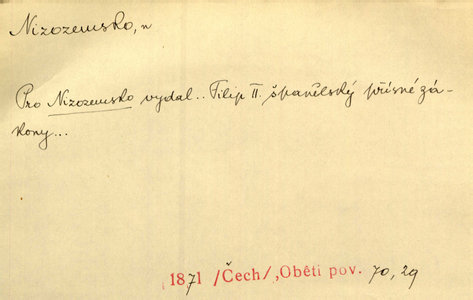 Nizozemsko, n
Pro Nizozemsko vydal.. Filip II. španělský přísné zá-
kony...
1871 /Čech/,Oběti pov. 70, 29